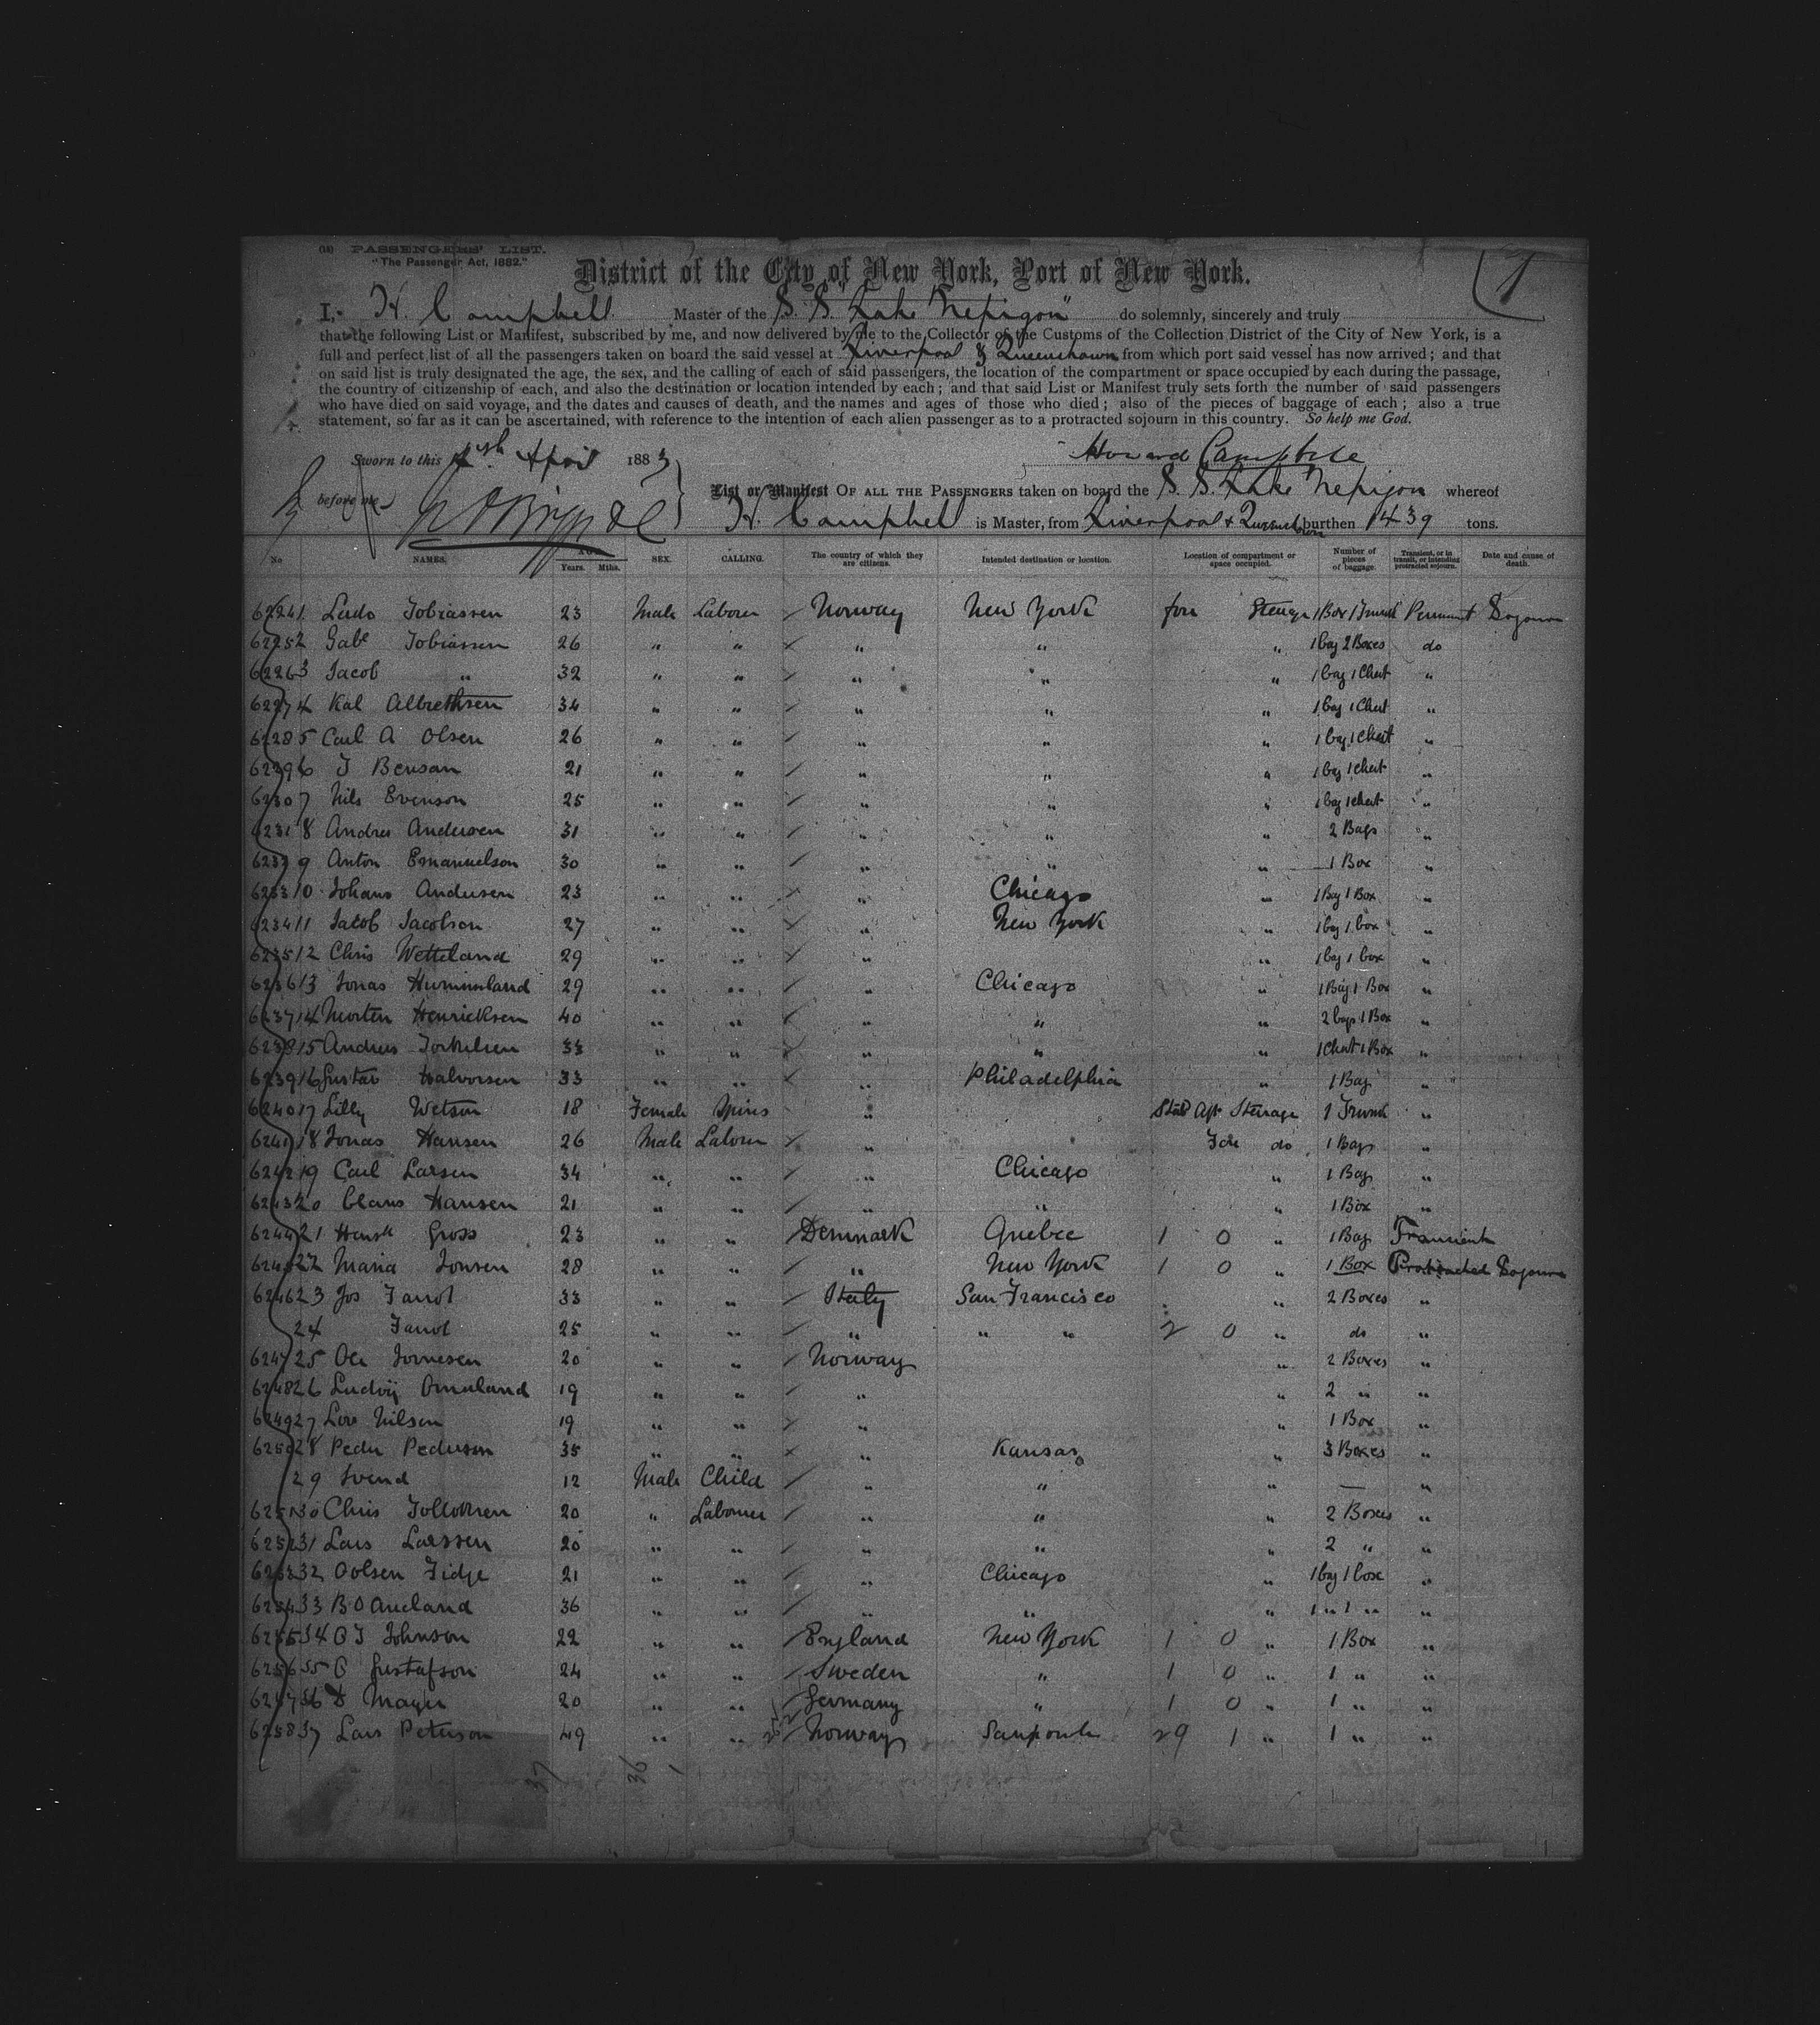 (18) PASSENGERS' LIST.
"The Passenger Act, 1882."
District of the City of New York, Port of New York.
I, H. Campbell Master of the S. S. "Lake Nepigon" do solemnly, sincerely and truly
that the following List or Manifest, subscribed by me, and now delivered by me to the Collector of the Customs of the Collection District of the City of New York, is a
full and perfect list of all the passengers taken on board the said vessel at Liverpool & Queenstown from which port said vessel has now arrived; and that
on said list is truly designated the age, the sex, and the calling of each of said passengers, the location of the compartment or space occupied by each during the passage,
the country of citizenship of each, and also the destination or location intended by each; and that said List or Manifest truly sets forth the number of said passengers
who have died on said voyage, and the dates and causes of death, and the names and ages of those who died; also of the pieces of baggage of each; also a true
statement, so far as it can be ascertained, with reference to the intention of each alien passenger as to a protracted sojourn in this country. So help me God.
Sworn to this April 1883 Howard Campbell
before me
List or Manifest OF ALL THE PASSENGERS taken on board the S. S. Lake Nepigon whereof
H. Campbell is Master, from Liverpool & Queenstown burthen 1439 tons.
No NAMES. AGE. Years. Mths. SEX. CALLING. The country of which they are citizens. Intended destination or location. Location of compartment or space occupied. Number of pieces of baggage. Transient, or in transit, or intending protracted sojourn. Date and cause of death.
6224 1 Ludo Tobiassen 23 Male Labourer Norway New York fore Steerage 1 Box 1 Trunk Sojourn
6225 2 Gabe Tobiassen 26 " " " " " 1 bag 2 Boxes do
6226 3 Jacob " 32 " " " " " 1 bag 1 Chest "
6227 4 Kal Albrethsen 34 " " " " " 1 bag 1 Chest "
6228 5 Carl A Olsen 26 " " " " " 1 bag 1 Chest "
6229 6 J Bensan 21 " " " " " 1 bag 1 Chest "
6230 7 Nils Evenson 25 " " " " " 1 bag 1 Chest "
6231 8 Andres Andersen 31 " " " " " 2 Bags "
6232 9 Anton Emanuelson 30 " " " " " 1 Box "
6233 10 Johans Andersen 23 " " " Chicago " 1 Bag 1 Box "
6234 11 Jacob Jacobson 27 " " " New York " 1 bag 1 box "
6235 12 Chris Wetteland 29 " " " " 1 bag 1 box "
6236 13 Jonas Hummland 29 " " " Chicago " 1 Bag 1 Box "
6237 14 Morten Henricksen 40 " " " " " 2 bags 1 Box "
6238 15 Andrew Torkelsen 33 " " " " " 1 Chest 1 Box "
6239 16 Gustav Halvorsen 33 " " " Philadelphia " 1 Bag "
6240 17 Lilly Wetson 18 Female Spins " Aft Steerage 1 Trunk "
6241 18 Jonas Hansen 26 Male Labourer " Fore do 1 Bags "
6242 19 Carl Larsen 34 " " " Chicago " 1 Bag "
6243 20 Claus Hansen 21 " " " " " 1 Box "
6244 21 Gross 23 " " Denmark Quebec 1 0 " 1 Bag Transient
6245 22 Maria Jonsen 28 " " " New York 1 0 " 1 Box Protracted Sojourn
6246 23 Jos Fanot 33 " " Italy San Francisco " 2 Boxes "
24 Fanot 25 " " " " " 2 0 " do "
6247 25 Ole 20 " " Norway " 2 Boxes "
6248 26 Ludvij Omuland 19 " " " " 2 " "
6249 27 Nilsen 19 " " " " 1 Box "
6250 28 Peder Pederson 35 " " " Kansas " 3 Boxes "
29 Svend 12 Male Child " " " — "
6251 30 Chris 20 " Labourer " " " 2 Boxes "
6252 31 Lars Larssen 20 " " " " " 2 " "
6253 32 Oolsen Fidje 21 " " " Chicago " 1 bag 1 box "
6254 33 B O Aneland 36 " " " " " 1 " 1 " "
6255 34 O J Johnson 22 " " England New York 1 0 " 1 Box "
6256 35 O Gustafson 24 " " Sweden " 1 0 " 1 " "
6257 36 D Mayer 20 " " Germany " 1 0 " 1 " "
6258 37 Lars Peterson 49 " " Norway 29 1 " 1 " "
37 36 1